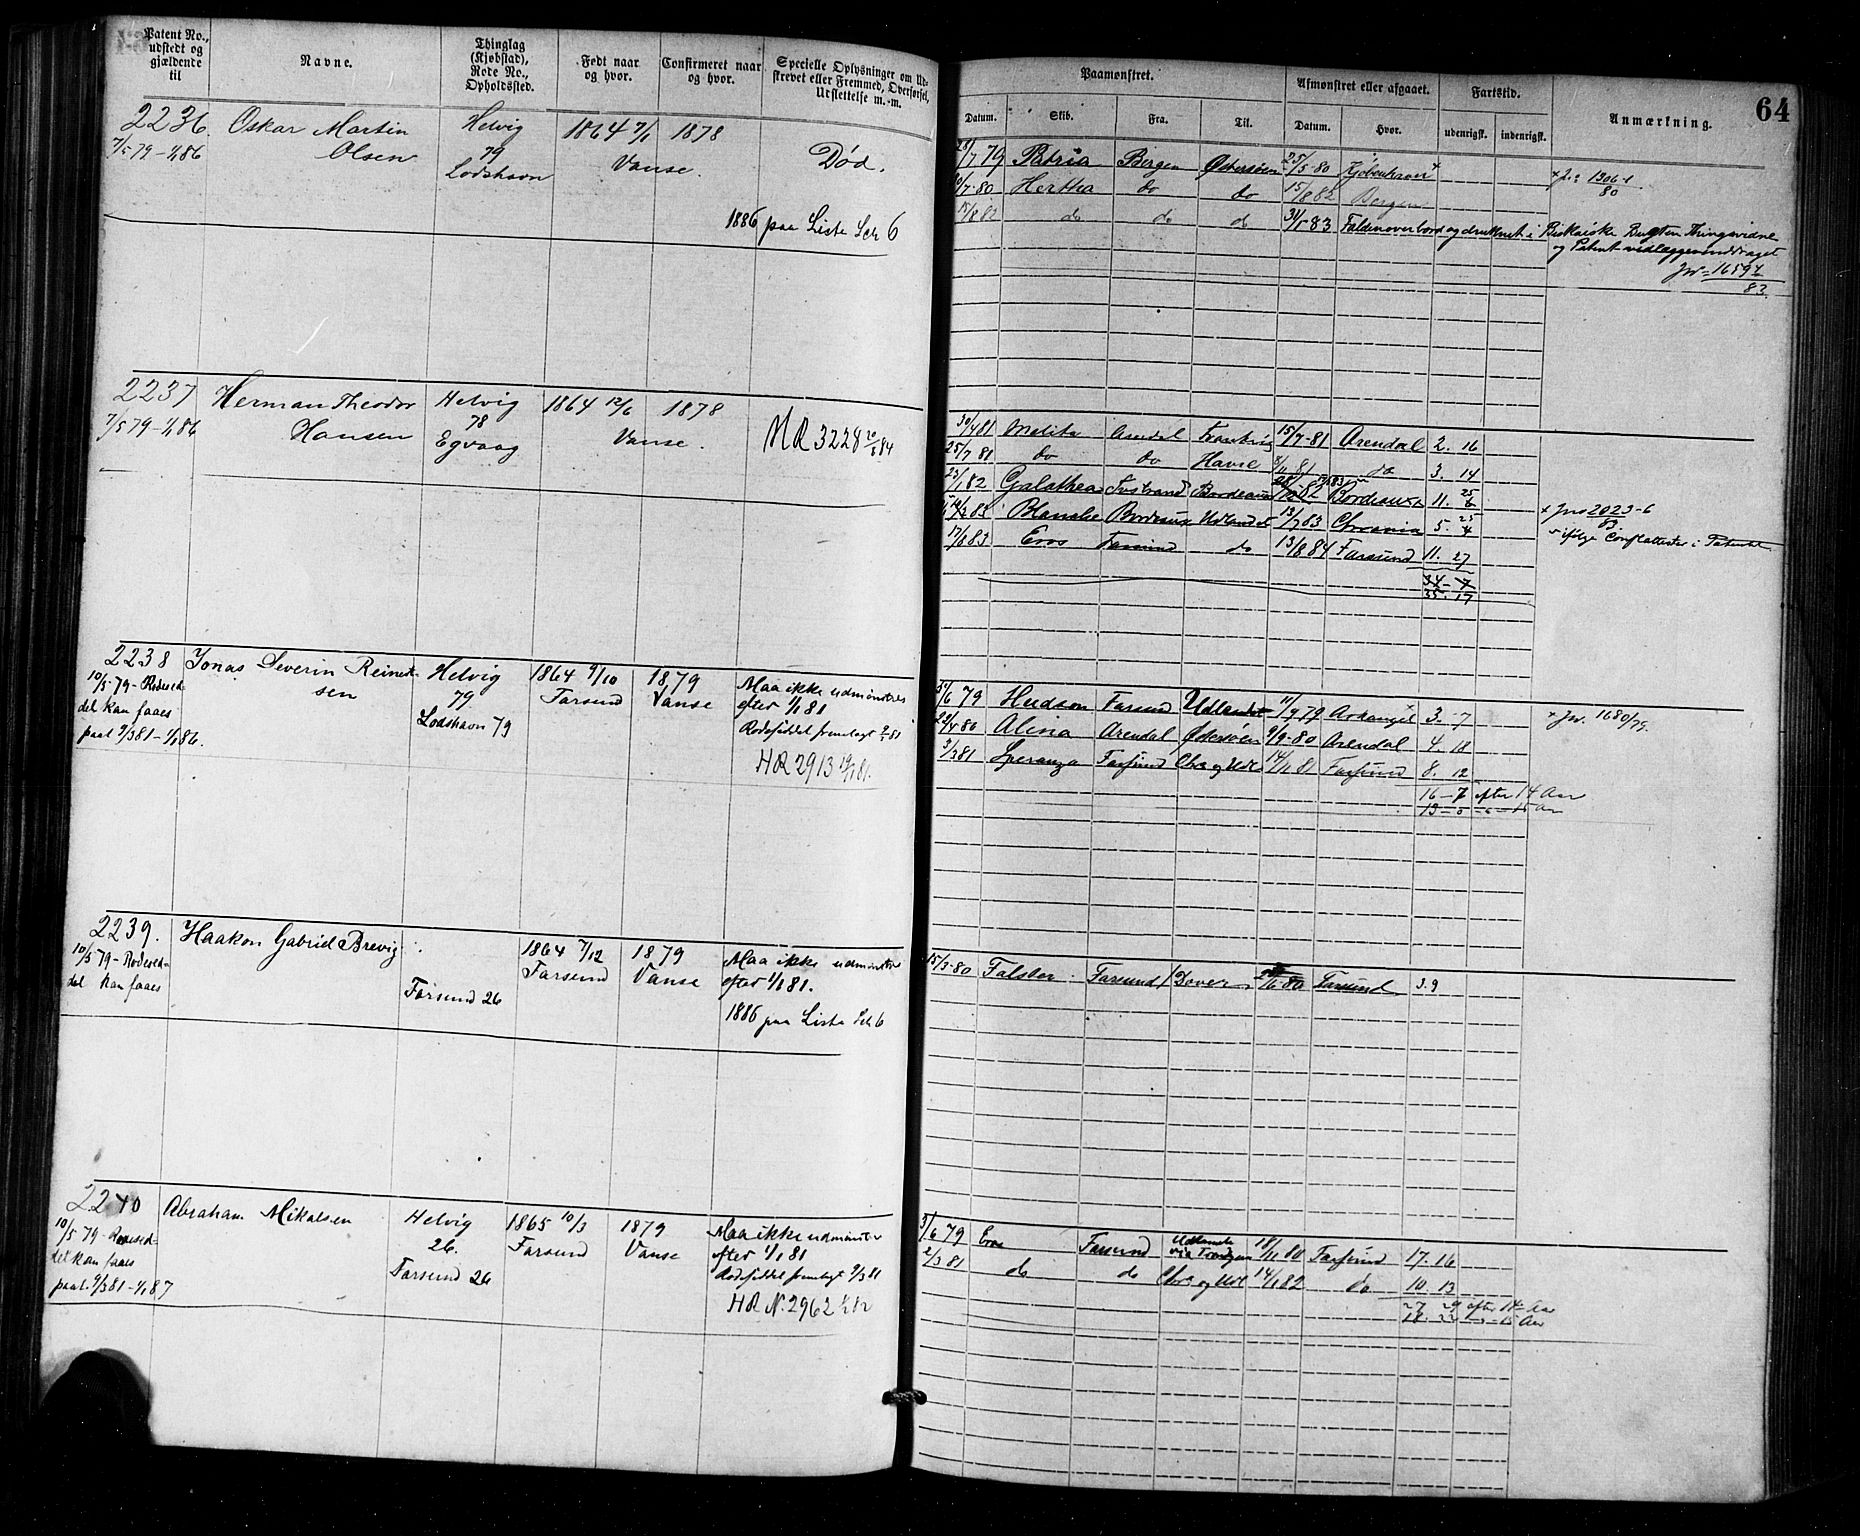 Patent No., udstedt og gjældende til
Navne.
Thinglag (Kjøbstad), Rode No., Opholdssted.
Født naar og hvor.
Confirmeret naar og hvor.
Specielle Oplysninger om Udskrevet eller Fremmed, Overførsel, Udslettelse m. m.
Paamønstret.
Afmønstret eller afgaaet.
Fartstid.
Anmærkning.
64
Datum. Skib. Fra. Til. Datum. Hvor. udenrigsk. indenrigsk.
2236. Oskar Martin Helvig 1864 1878
7/5 79 - 1/1 86 Olsen 79 Vanse Død.
Lodshavn
1886 paa Liste Sch 6
28/7 79 Patria Bergen Østersøen 25/5-80 Kjøbenhavn x
7-80 Hertha do do 15/8 82 Bergen
8 82 do do d 83 Falden overbord og druknet i Biskaiske Bugten Thingsvidne
og Patent vedlægges inddraget
Jno 16597
83
2237 Herman Theodor Helvig 1864 12/6 1878
7/5 79 - 1/1 86 Hansen 78 Vanse. MR 3228 84
Egvaag
30/4 81 Melita Arendal Frankrig 15/7-81 Arendal 2. 16
25/7 81 do do Havre 8/11 81 do 3. 14
23/1 82 Galathea Bordeaux 82 Bordeaux 11.
83 Blanche Bordeaux Udlandet 13/7 83 Chrania 5. x Jno 2023-6
83
ifølge i Patentet
83 Eros Farsund do 13/8 84 Farsund 11. 27
34 - 7
35. 17
2238 Jonas Severin Reinert- Helvig 1864 9/10 1879 Maa ikke udmønstres
10/5 79 - Rodesed- sen 79 Farsund Vanse efter 1/1 81
del kan faaes Lodshavn 79 Rodesiddel fremlagt 81
paat. 9/3 81 - 1/1 86. HR 2913 81.
5/6 79 Hudson Farsund Udlandet 11/9 79 Arkangel x 3. 7 x Jno. 1680/79.
22/4 80 Alina Arendal Østersøen 9/9-80 Arendal 4. 18
3/3 81 Speranza Farsund Chra og Udl 14/11 81 Farsund 8. 12
16 - 7 efter 14 Aar
13 - 0 - " - 15 Aar
2239. Haakon Gabriel Brevig 1864 7/12 1879 Maa ikke udmønstres
10/5 79 - Rodesed- Farsund 26 Farsund Vanse efter 1/1 81.
del kan faaes 1886 paa Liste Sch 6
15/3-80 Falster Farsund / Dover 80 Farsund 3. 9
2240 Abraham Mikalsen Helvig 1865 10/3 1879 Maa ikke udmønstres
10/5 79 - Rodesed- 26. Farsund Vanse efter 1/1 81
del kan faaes Farsund 26 Rodesiddel fremlagt 9/3 81
paat. 9/3 81 - 1/1 87 HR N. 2962
5/6 79 Eros Farsund Udlandet via 18/11 80 Farsund 17. 16
2/3 81 do do Chra og Udl 14/1 82 do 10. 13
27 29 efter 14 Aar
18. 15 Aar